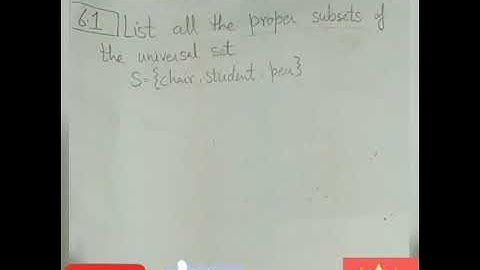 6.1 List all the proper subsets of
the universal set
S={chair, student, pen}